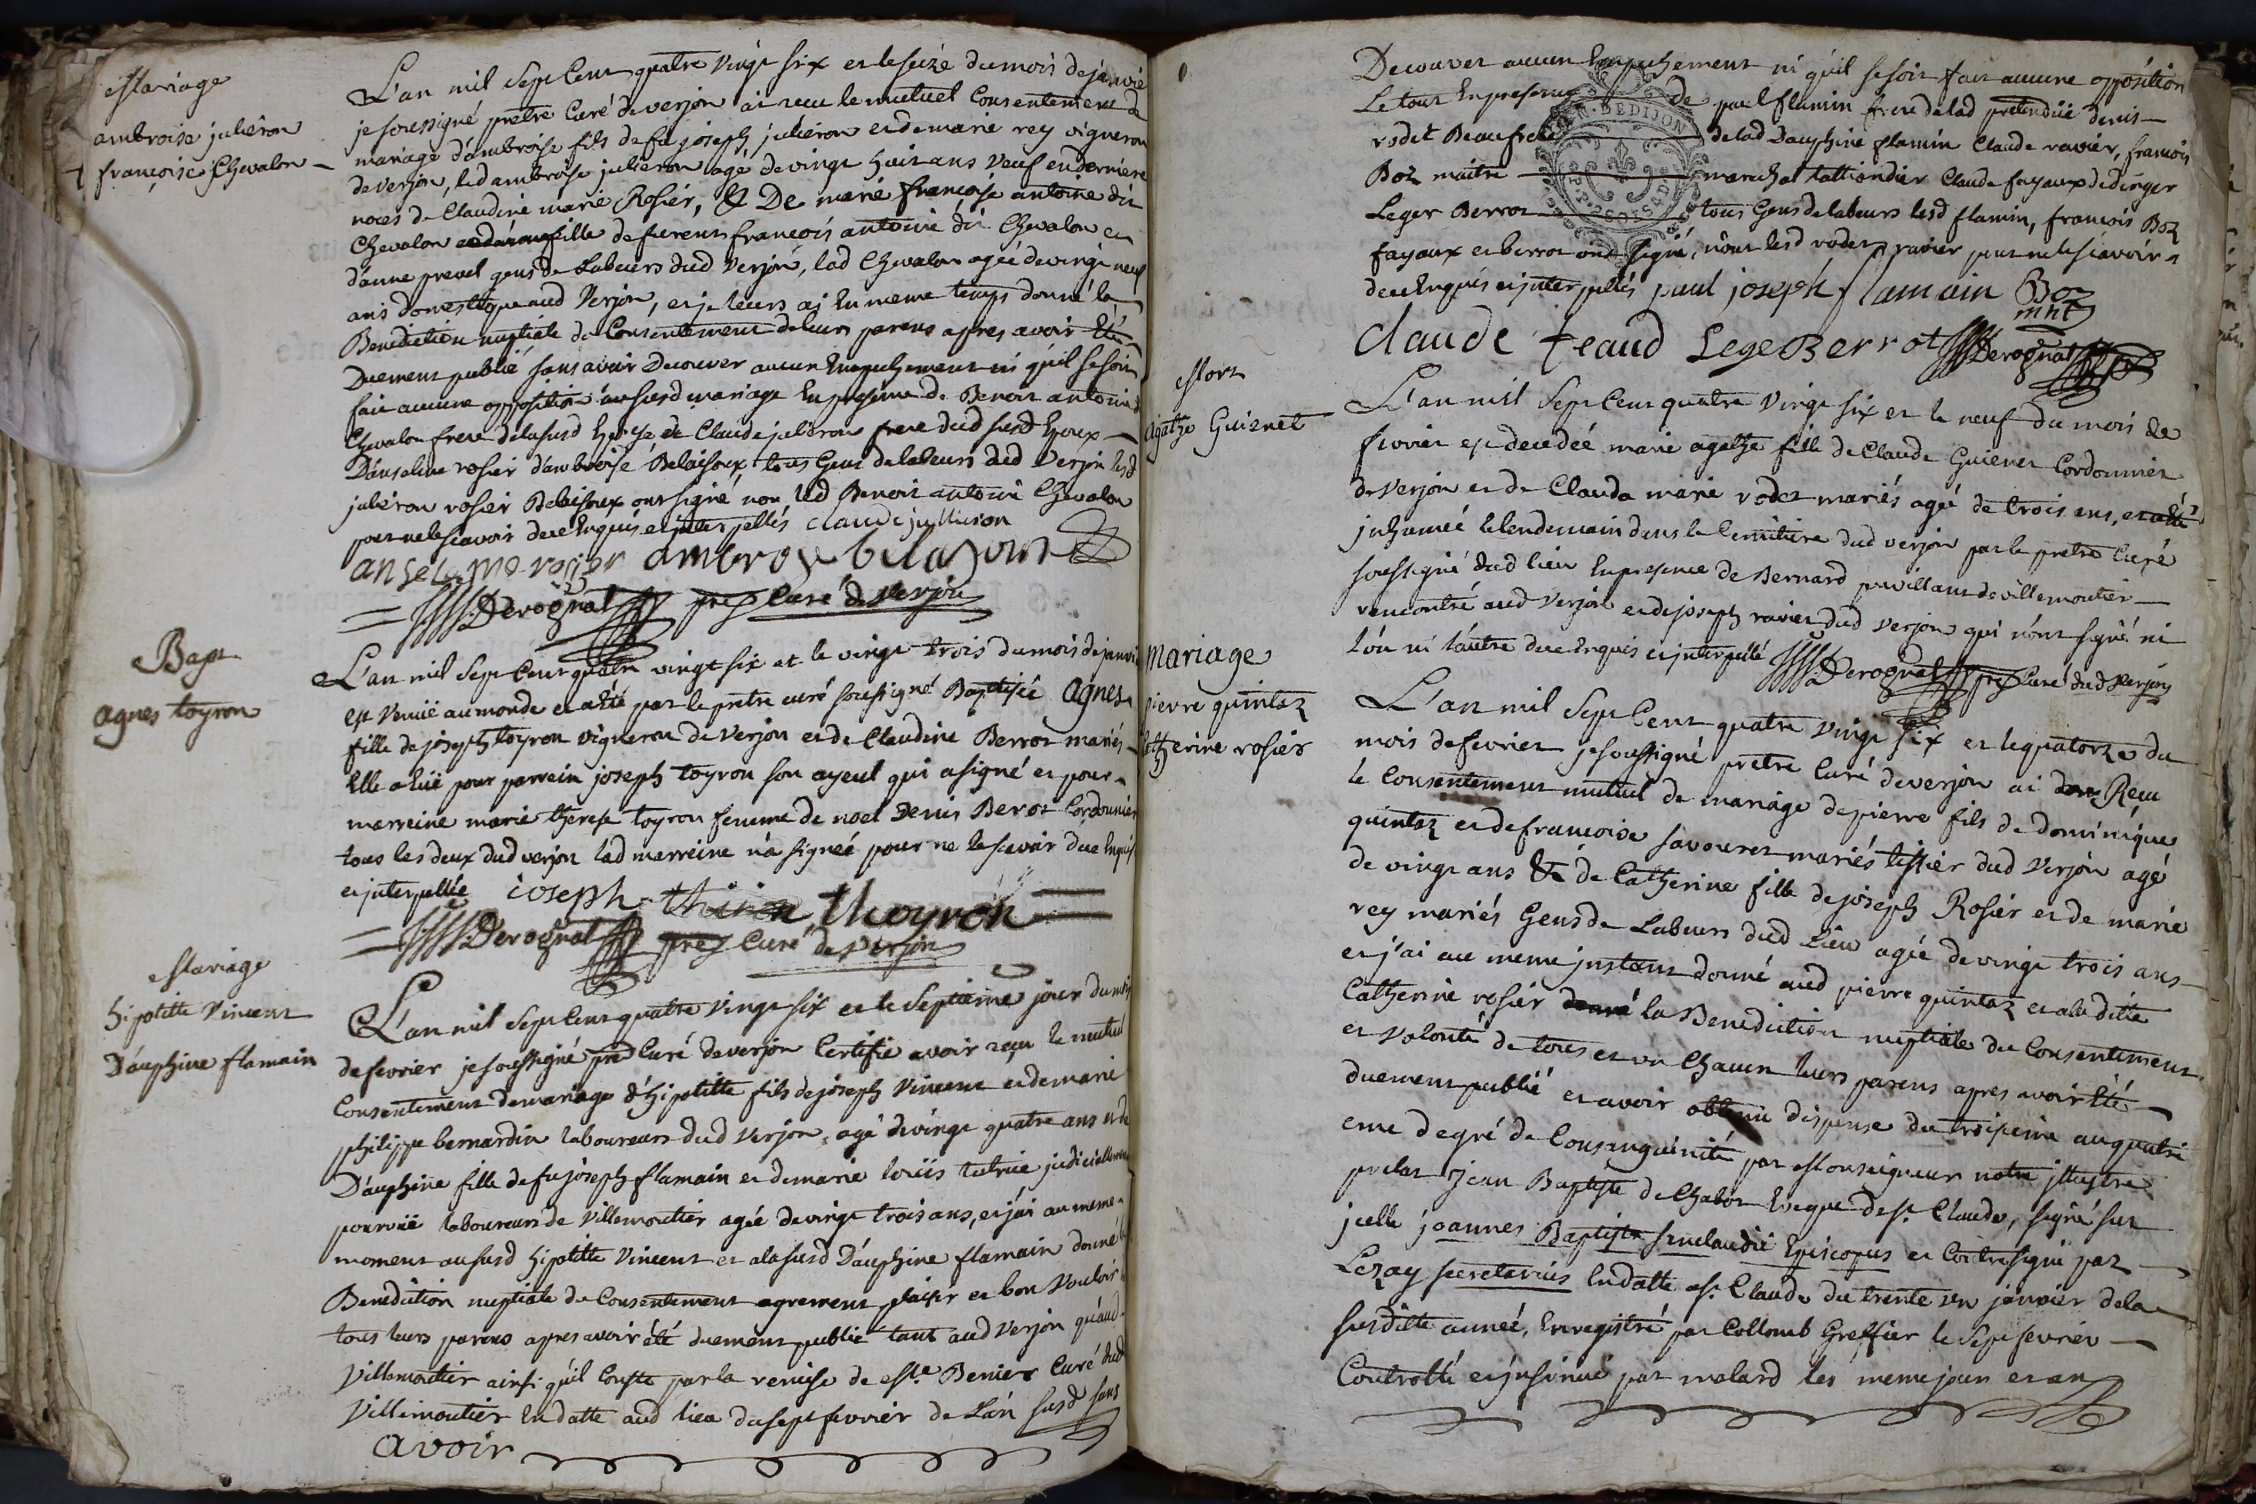 Mariage
ambroise julieron
françoise Chevalon
L'an mil Sept Cent quatre Vingt six et le seize du mois de janvié
je soussigné pretre Curé de verjon ai recu le mutuel Consentement de
mariage d'ambroise fils de fu joseph julieron et de marie rey vigneron
de verjon, led ambroise julieron agé de vingt huit ans veuf en derniere
noces de Claudine marie Rosier, & De marie françoise antoine dit
Chevalon fille de furent françois antoine dit Chevalon et
d'anne prevel gens de Labeurs dud Verjon, lad Chevalon agée de vingt neuf
ans domestique aud Verjon, et je leurs ai En meme temps donné la
Benediction nuptiale du Consentement de leurs parens apres avoir Eté
Duement publié sans avoir Decouver aucun Empechement ni qu'il se soit
fait aucune opposition au susd mariage En presence de Benoit antoine
Chevalon frere de la susd Epouse de Claude julieron frere dud susd Epoux
D'anselme rosier d'ambroise Belaisoux tous Gens de labeurs dud Verjon lesd
julieron rosier Belaisoux ont signé non led Benoit antoine Chevalon
pour ne le sçavoir de ce Enquis et interpellés claude jullieron
anselme rosier ambroise belaysoux
Derognat pre Curé de Verjon
Bapt
agnes toyron
L'an mil Sept Cent quatre vingt six et le vingt trois du mois de janvié
Est venuë au monde et a été par le pretre curé soussigné Baptisée Agnes
fille de joseph toyron vigneron de Verjon et de Claudine Berrot mariés
Elle a Euë pour parrein joseph toyron son ayeul qui a signé et pour
marreine marie therese toyron femme de noel Denis Berot Cordonnier
tous les deux dud verjon lad marreine n'a signée pour ne le scavoir de ce Enquis
et interpellée ioseph thoyron
Derognat pre Curé de Verjon
Mariage
hipolitte Vincent
Dauphine flamain
L'an mil Sept Cent quatre Vingt six et le Septieme jour du mois
de fevrier je soussigné pre Curé de verjon Certifie avoir reçu le mutuel
Consentement de mariage d'hipolitte fils de joseph Vincent et de marie
philippe bernardin laboureurs dud Verjon, agé de vingt quatre ans et de
Dauphine fille de fu joseph flamain et de marie loüis tutrice judiciellement
pourvuë laboureurs de Villemoutier agée de vingt trois ans, et j'ai au meme
moment au susd hipolitte Vincent et a la susd Dauphine flamain donné la
Benediction nuptiale du Consentement agrement plaisir et bon Vouloir
tous leurs parens apres avoir été duement publié tant aud Verjon qu'aud
Villemoutier ainsi qu'il Conste par la remise de Mre Benier Curé dud
Villemoutier En datte aud lieu du sept fevrier de L'an susd sans
avoir
Decouver aucun Empechement ni qu'il se soit fait aucune opposition
Le tout En presence de paul flamin frere de lad pretenduë denis
rodet Beaufrere de lad Dauphine flamin Claude ravier, françois
Boz maitre marechal tattiandier Claude fayaux de dinger
Leger Berrot tous Gens de labeurs lesd flamin, françois Boz
fayaux et berrot ont signé, non lesd rodet ravier pour ne le sçavoir
de ce Enquis et interpellés paul joseph flamain Boz
claude feaud Lege Berrot Derognat pre
Mort
Agathe Guienet
L'an mil Sept Cent quatre Vingt six et le neuf du mois de
fevrier est decedée marie agathe fille de Claude Guienet Cordonnier
de Verjon et de Clauda marie rodet mariés agée de trois ans, et a été
inhumée le lendemain dans le Cemitiere dud verjon par le pretre Curé
soussigné dud lieu En presence de Bernard de villemoutier
rencontré aud Verjon et de joseph ravier dud verjon qui n'ont signé ni
L'un ni l'autre de ce Enquis et interpellé Derognat pre Curé dud Verjon
Mariage
pierre quintaz
Catherine rosier
L'an mil Sept Cent quatre Vingt six et le quatorze du
mois de fevrier je soussigné pretre Curé de verjon ai Recu
le Consentement mutuel de mariage de pierre fils de dominique
quintaz et de francoise savouret mariés tissier dud Verjon agé
de vingt ans & de Catherine fille de joseph Rosier et de marie
rey mariés Gens de Labeurs dud Lieu agée de vingt trois ans
et j'ai au meme instant donné aud pierre quintaz et a la ditte
Catherine rosier la Benediction nuptiale du Consentement
et volonté de tous et un Chacun leurs parens apres avoir Eté
duement publié et avoir obtenu dispense du troisieme au quatri
eme degré de Consanguinité par Monseigneur notre illustre
prelat Jean Baptiste de Chabot Eveque de St Claude, signé sur
icelle joannes Baptista snclaudii Episcopus et Contresigné par
Lezay secretarius En datte a St Claude du trente un janvier de la
susditte année, Enregistré par Collomb Greffier le Sept fevrier
Controllé et insinué par malard les meme jour et an